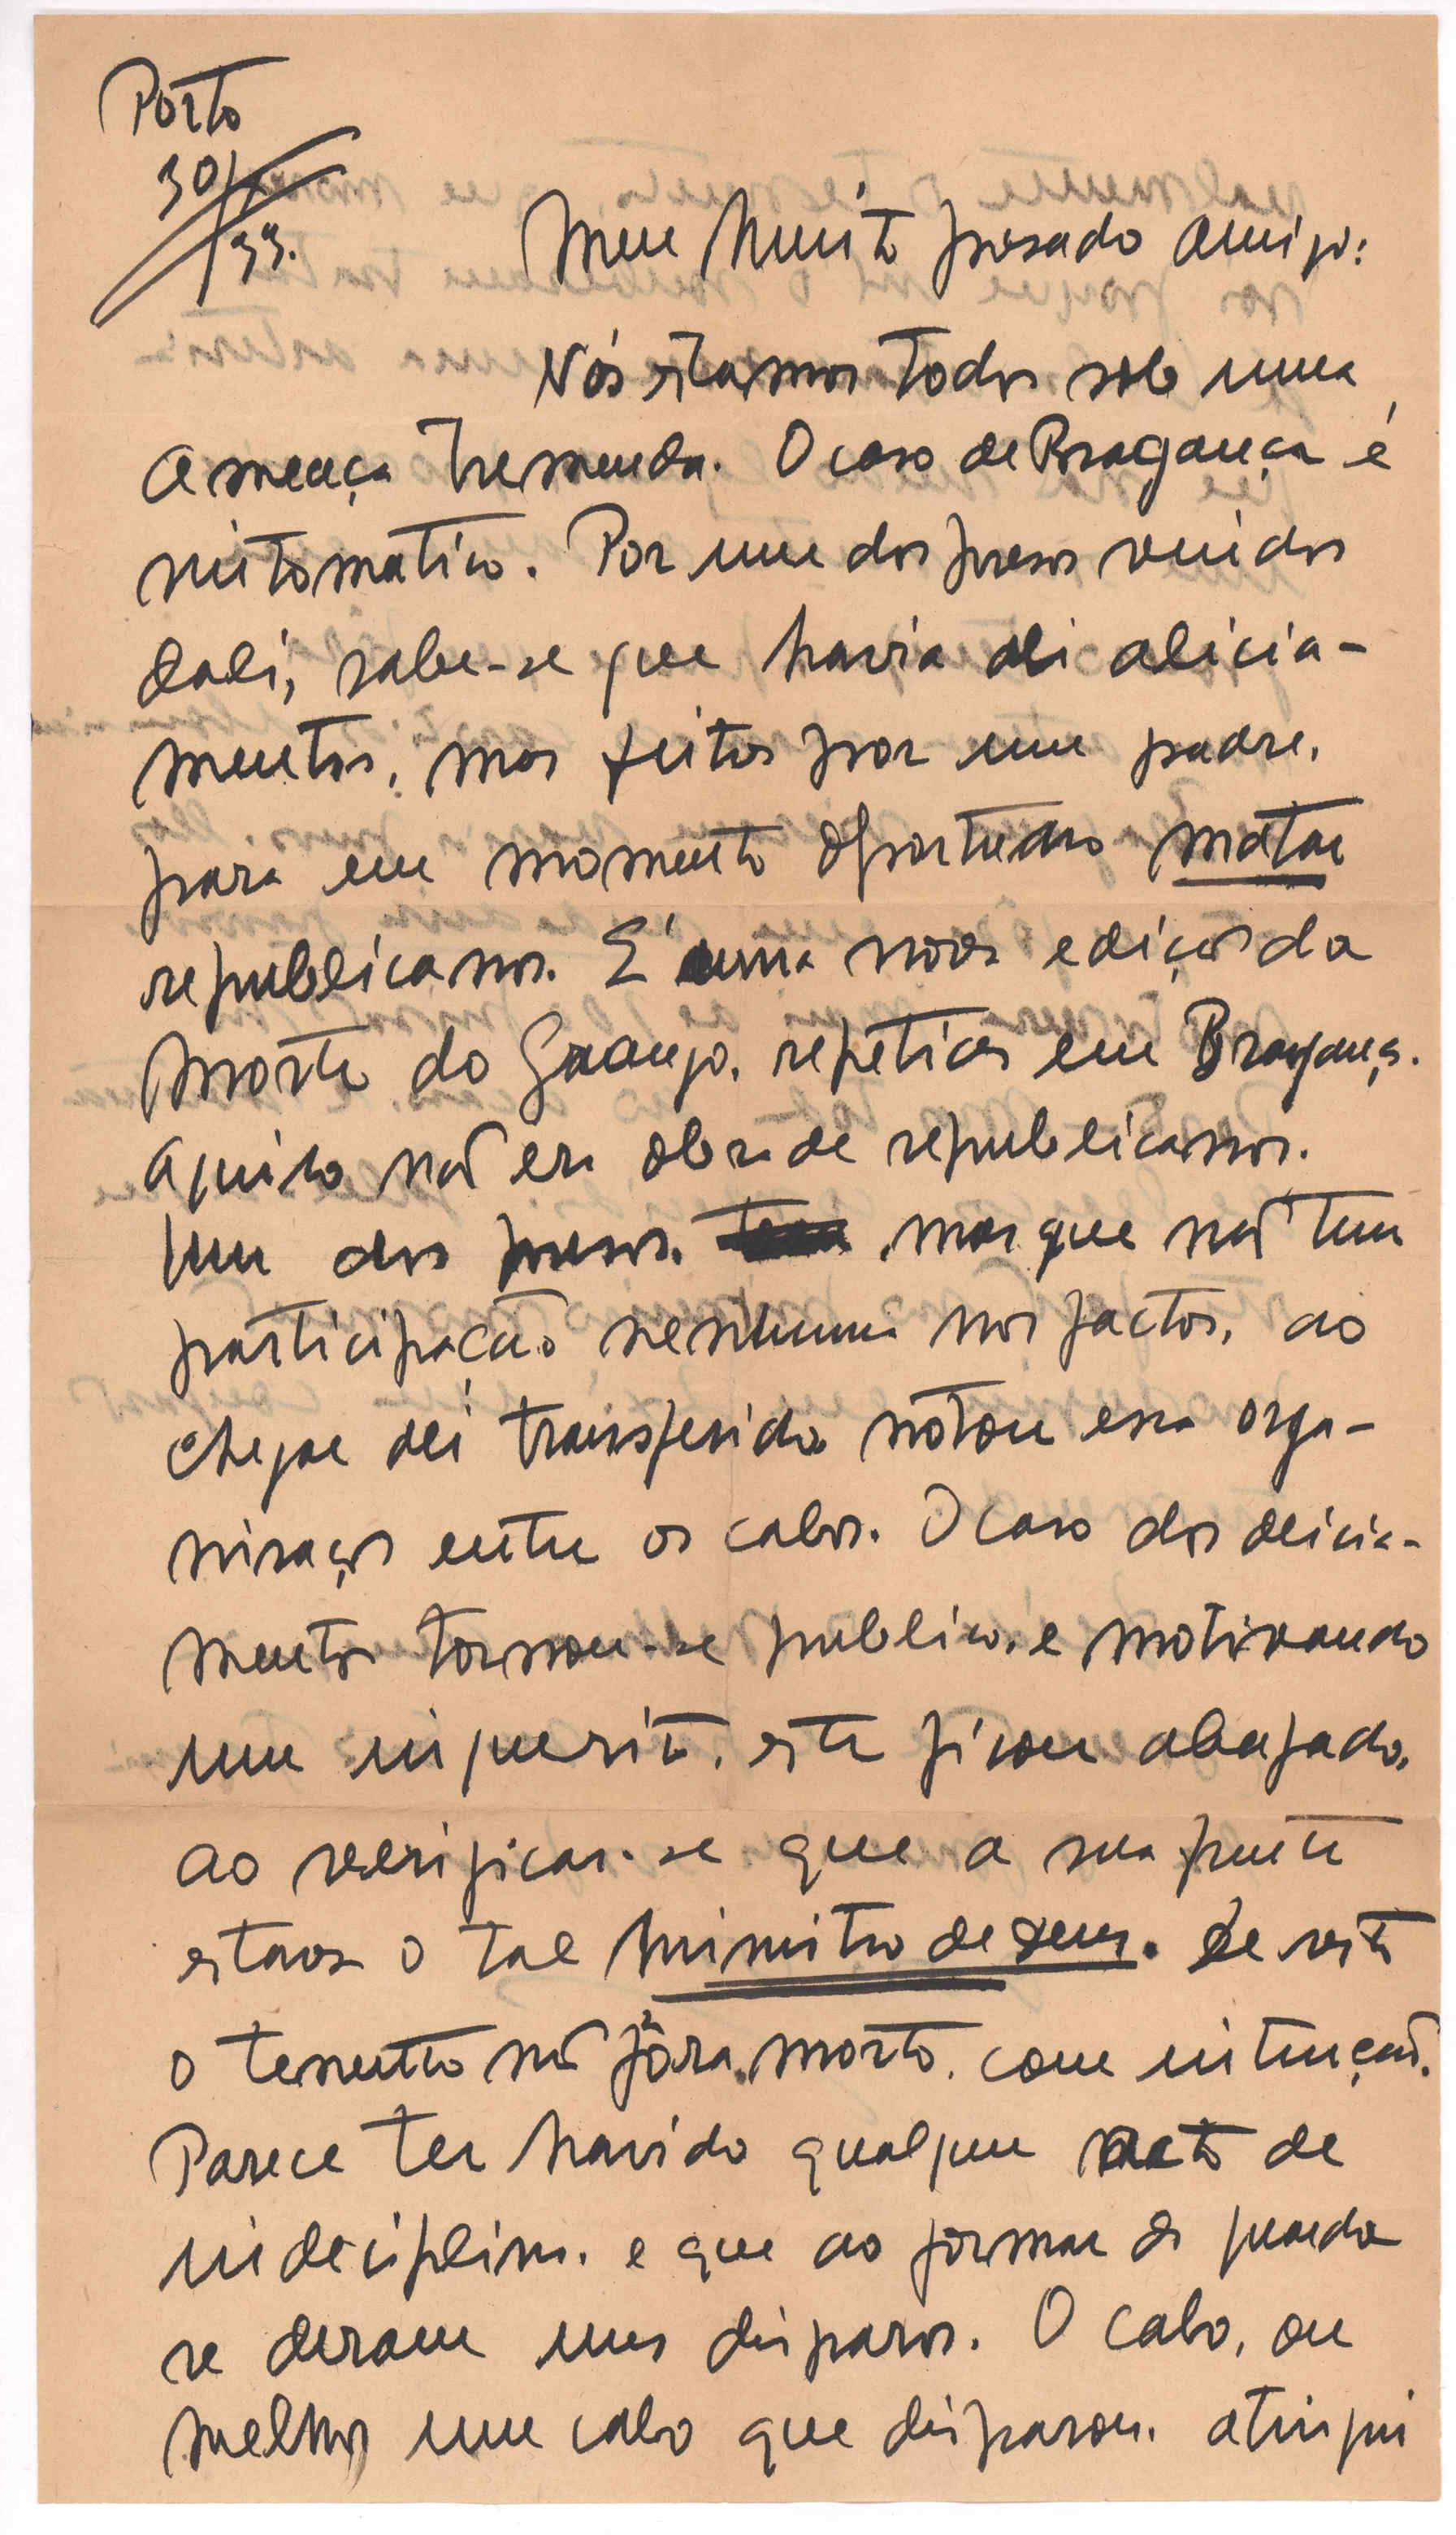 Porto
30/X
/33.
Meu Muito presado amigo:
Nós estamos todos sob uma
ameaça tremenda. O caso de Bragança é
sintomatico. Por um dos presos vindos
dali, sabe-se que havia ali alicia-
mentos, mas feitos por um padre,
para em momento oportuno matar
republicanos. É uma nova edição da
morte do Granjo, repetida em Bragança.
Aquilo não era obra de republicanos.
Um dos presos, mas que não tem
participação nenhuma nos factos, ao
chegar ali transferido notou essa orga-
nisação entre os cabos. O caso dos alicia-
mentos tornou-se publico, e motivando
um inquerito, este ficou abafado,
ao verificar-se que a sua frente
estava o tal ministro de deus. De resto
o tenente não fôra morto, com intenção.
Parece ter havido qualquer acto de
indeciplina, e que ao formar a guarda
se deram uns disparos. O cabo, ou
melhor um cabo que disparou, atingiu